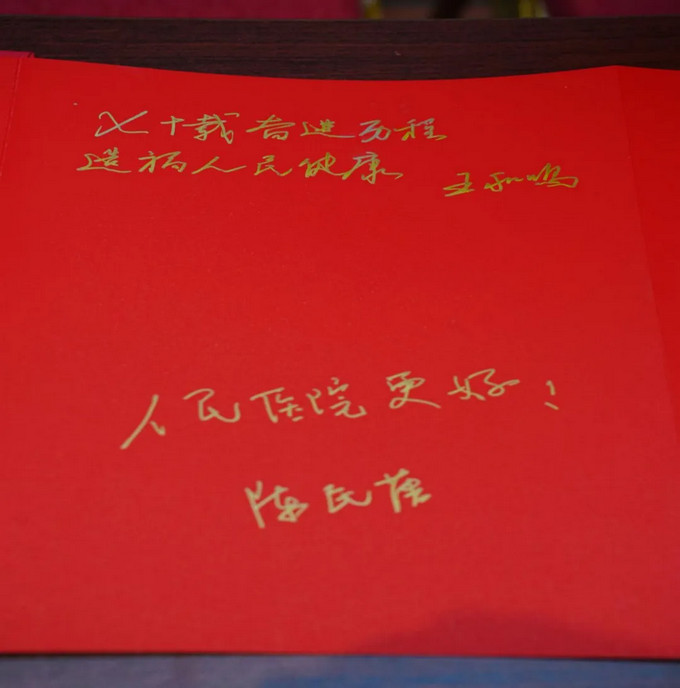 七十载奋进历程
造福人民健康 王和鸣
人民医院更好！
陈民藩